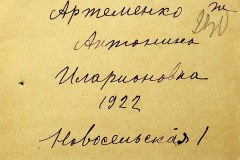 Артеменко ж
Антонина
Иларионовна
1922
Новосельская 1